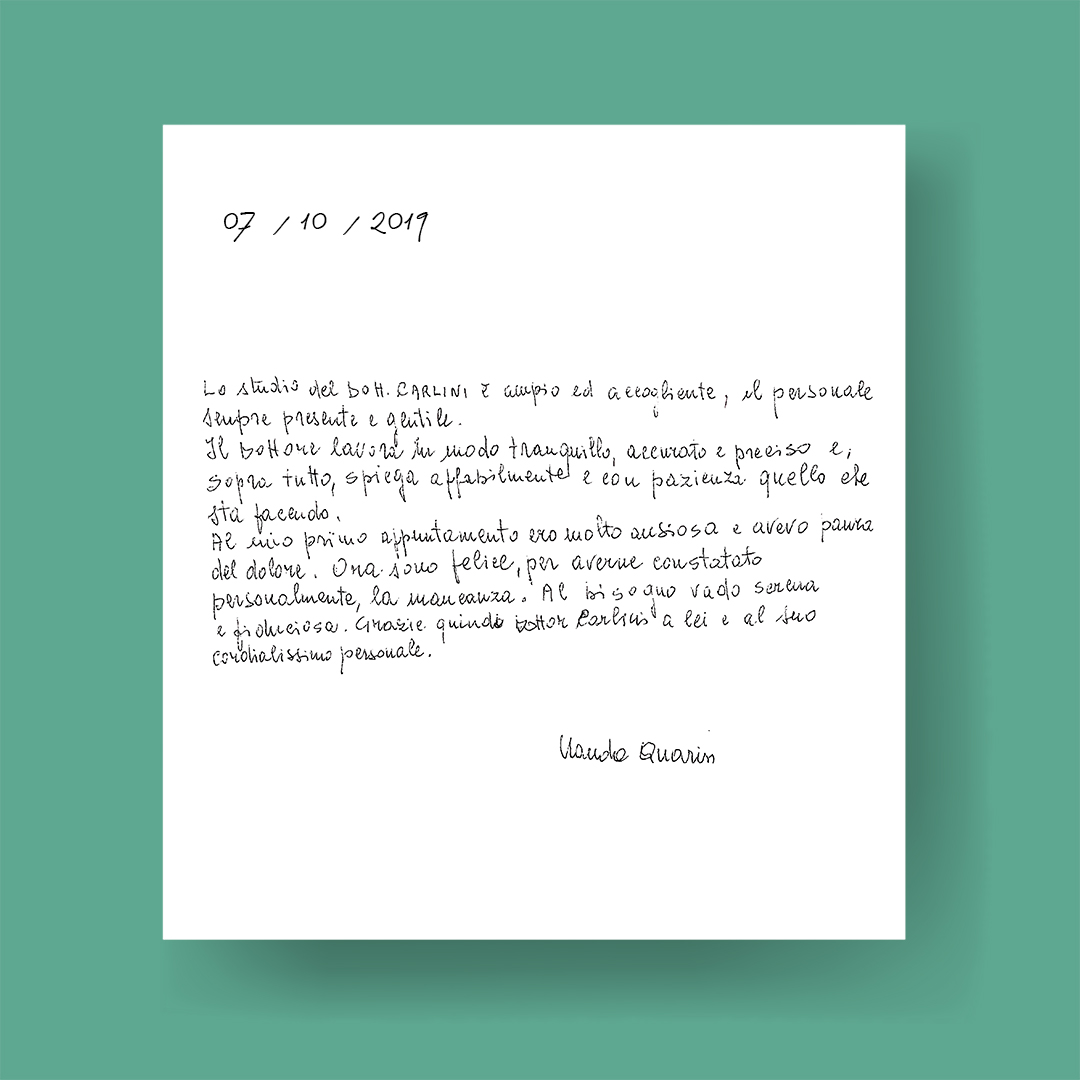 07 / 10 / 2019
Lo studio del DOTT. CARLINI è ampio ed accogliente, il personale
sempre presente e gentile.
Il Dottore lavora in modo tranquillo, accurato e preciso e,
sopra tutto, spiega affabilmente e con pazienza quello che
sta facendo.
Al mio primo appuntamento ero molto ansiosa e avevo paura
del dolore. Ora sono felice, per averne constatato
personalmente, la mancanza. Al bisogno vado serena
e fiduciosa. Grazie quindi Dottor Carlini a lei e al suo
cordialissimo personale.
Quarin